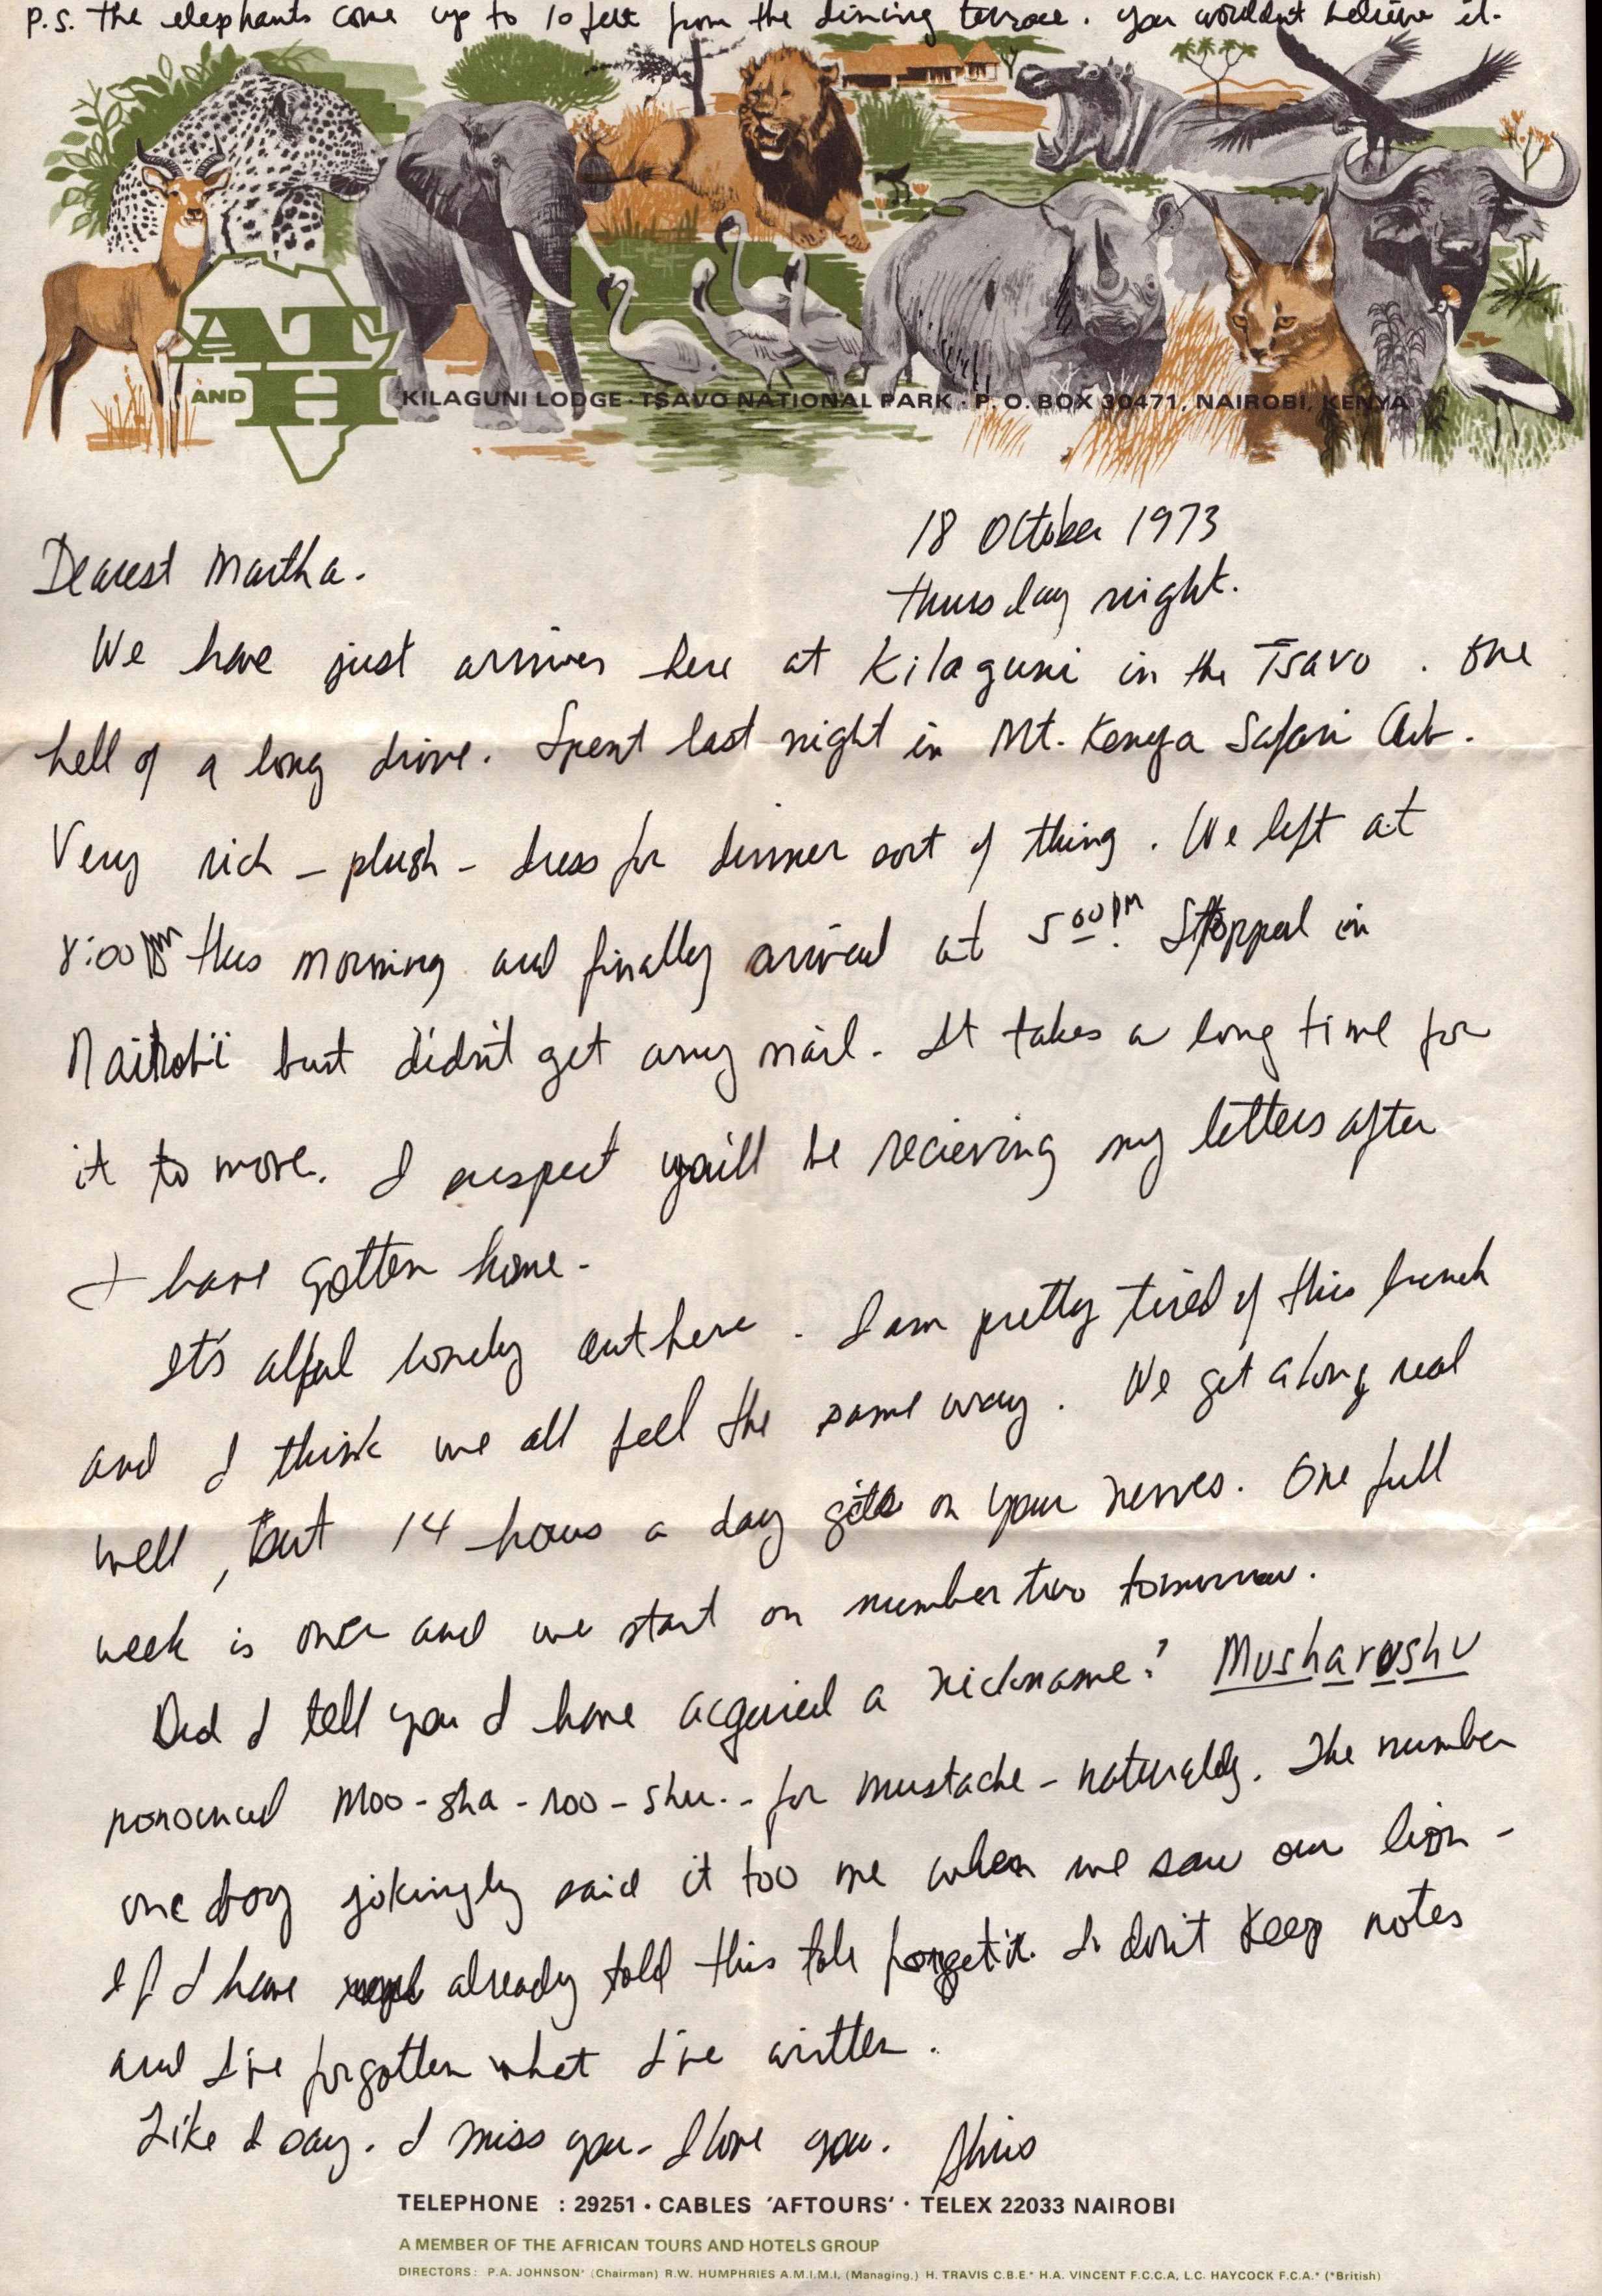 P.S. The elephants come up to 10 feet from the dining terrace. You wouldn't believe it.
AT
AND H
KILAGUNI LODGE · TSAVO NATIONAL PARK · P. O. BOX 30471, NAIROBI, KENYA
18 October 1973
Thursday night.
Dearest Martha.
We have just arrived here at Kilaguni in the Tsavo. One
hell of a long drive. Spent last night in Mt. Kenya Safari Club.
Very rich – plush – dress for dinner sort of thing. We left at
8:00 this morning and finally arrived at 5 00 PM. Stopped in
Nairobi but didn't get any mail. It takes a long time for
it to move. I suspect you'll be recieving my letters after
I have gotten home.
It's alful lonely out here. I am pretty tired of this bunch
and I think we all feel the same way. We get along real
well, but 14 hours a day gets on your nerves. One full
week is over and we start on number two tomorrow.
Did I tell you I have acquired a nickname? Musharushu
pronounced Moo-sha-roo-shu.. for mustache – naturally. The number
one boy jokingly said it too me when we saw our lion –
If I have already told this tale forget it. I don't keep notes
and I've forgotten what I've written.
Like I say. I miss you. I love you.
TELEPHONE : 29251 · CABLES 'AFTOURS' · TELEX 22033 NAIROBI
A MEMBER OF THE AFRICAN TOURS AND HOTELS GROUP
DIRECTORS: P.A. JOHNSON* (Chairman) R.W. HUMPHRIES A.M.I.M.I. (Managing.) H. TRAVIS C.B.E.* H.A. VINCENT F.C.C.A, L.C. HAYCOCK F.C.A.* (*British)